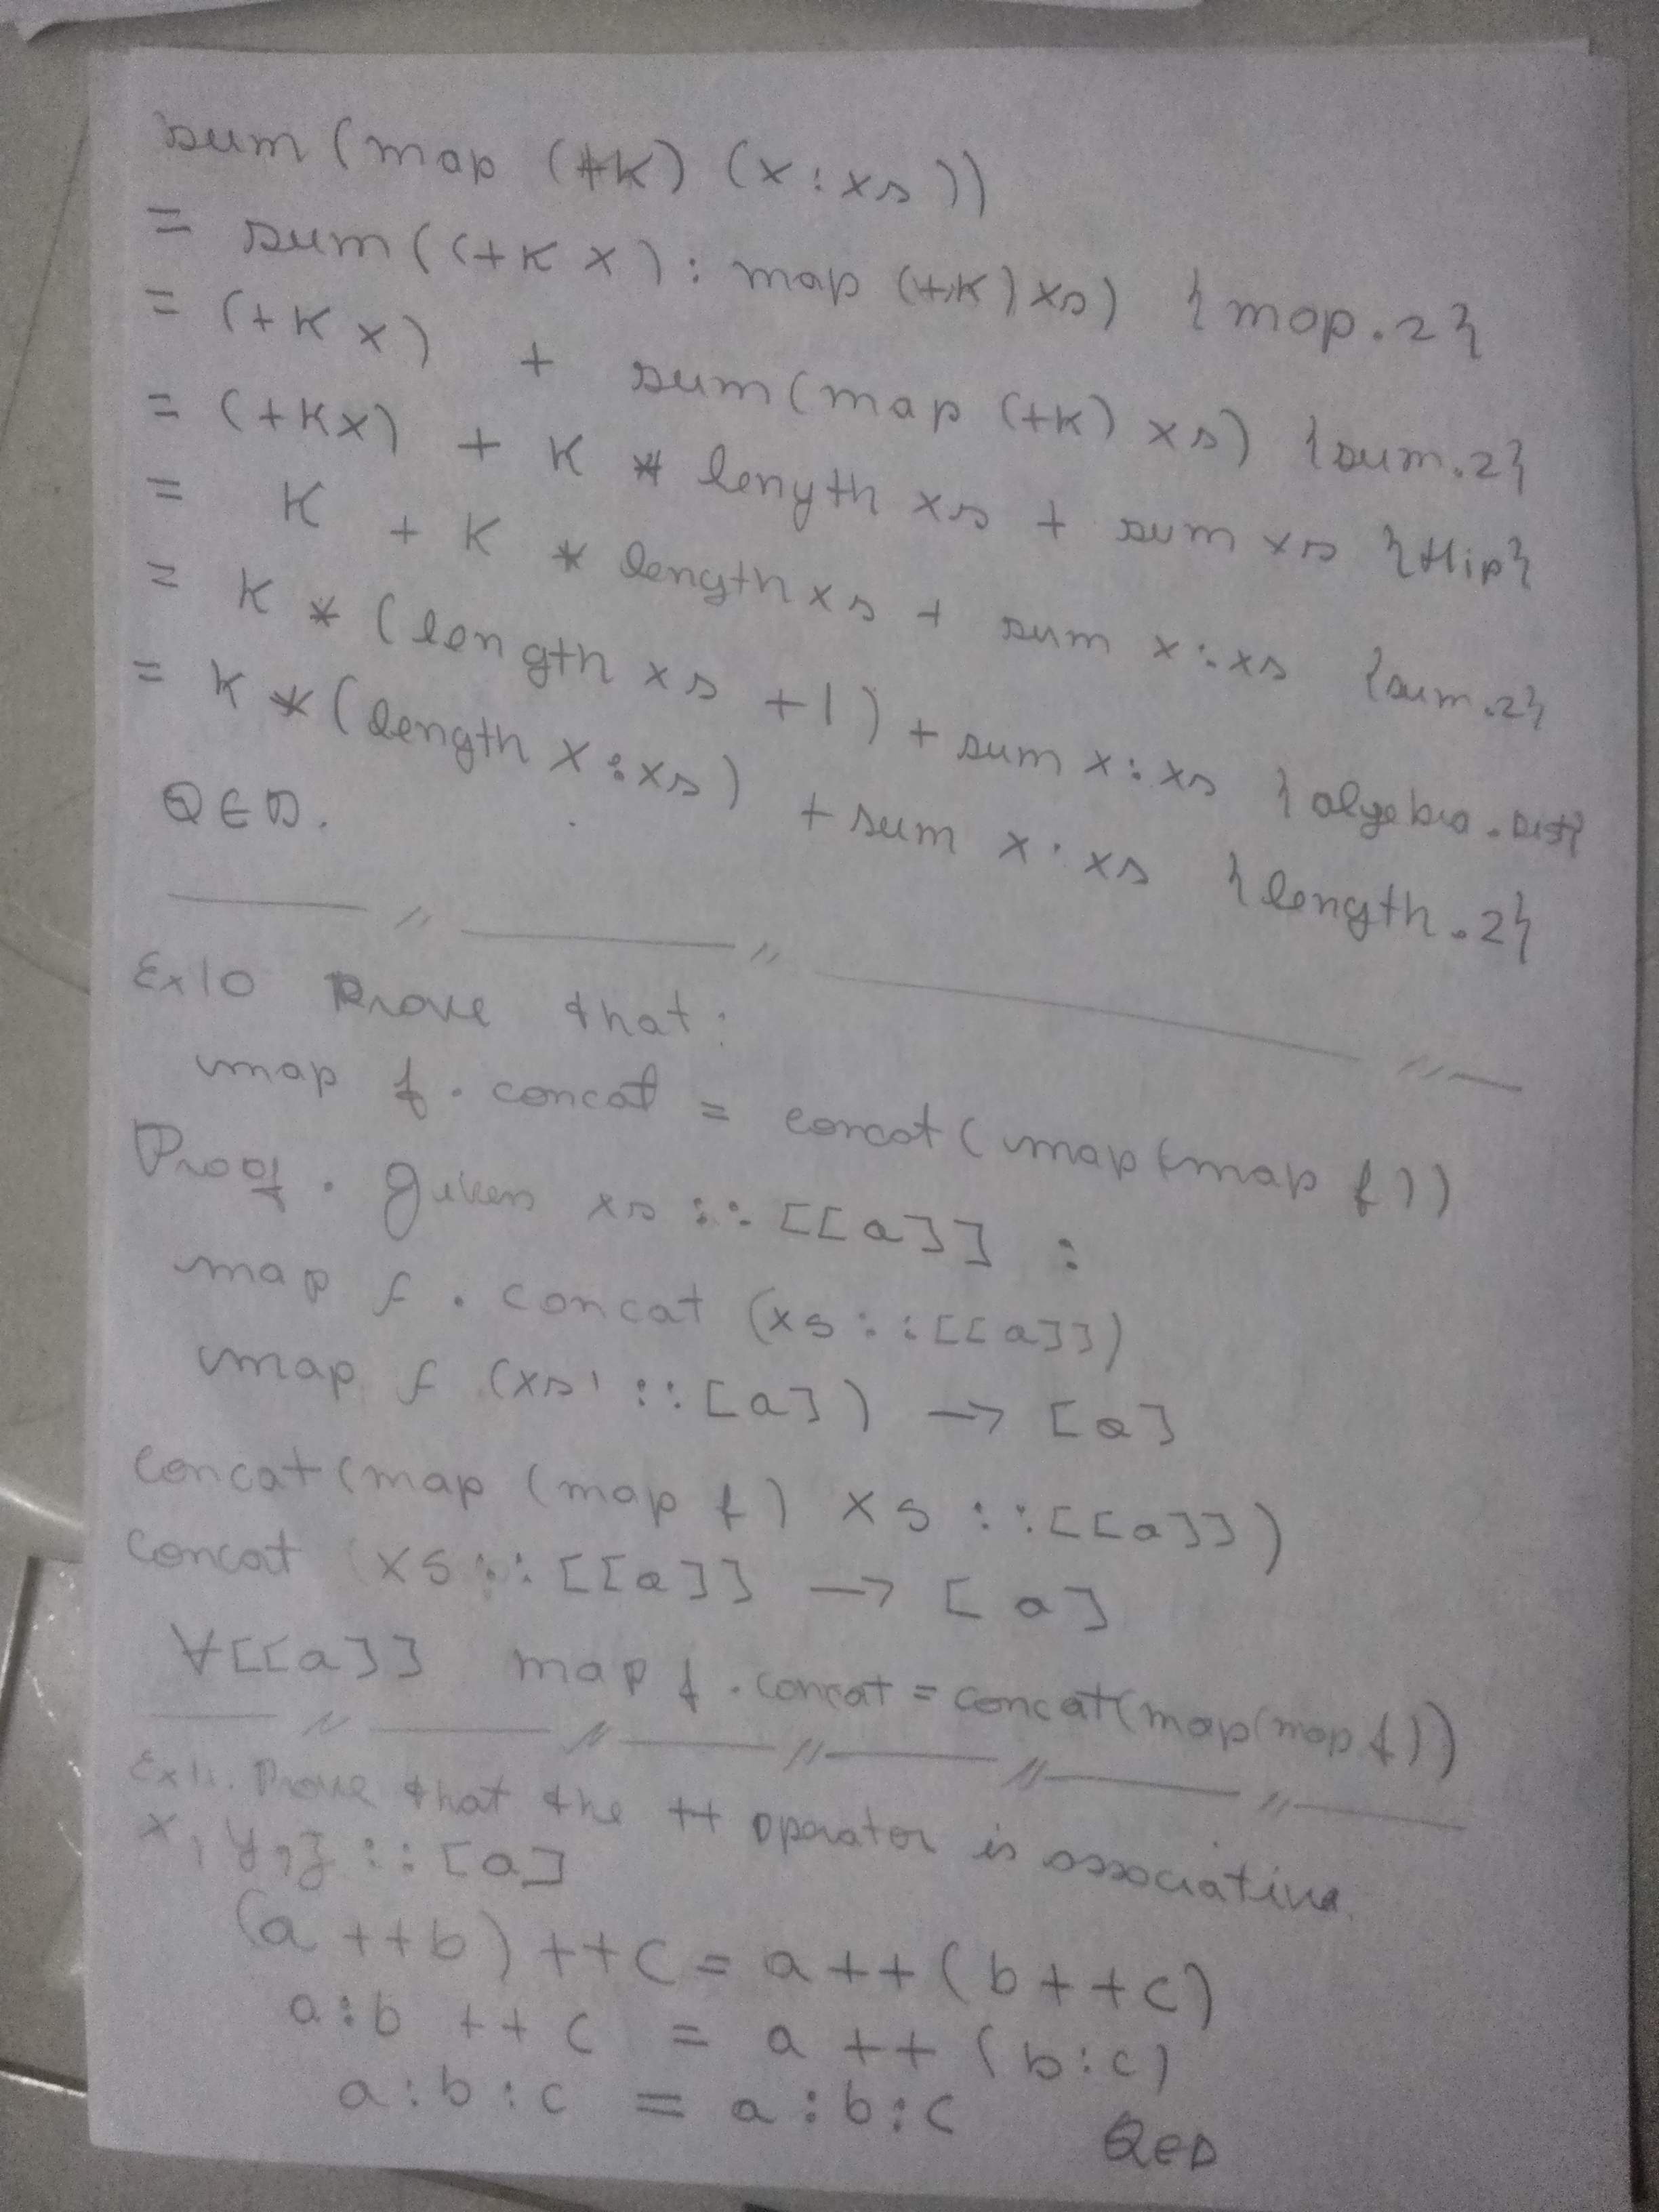 sum (map (+K) (x:xs))
= sum ((+K x) : map (+K) xs) {map.2}
= (+K x) + sum (map (+K) xs) {sum.2}
= (+Kx) + K * length xs + sum xs {Hip}
= K + K * length xs + sum x:xs {sum.2}
= K * (length xs +1) + sum x:xs {algebra.Dist}
= K * (length x:xs) + sum x:xs {length.2}
QED.
Ex10 Prove that:
map f . concat = concat (map (map f))
Proof. Given xs :: [[a]] :
map f . concat (xs :: [[a]])
map f (xs' :: [a]) → [a]
concat (map (map f) xs :: [[a]])
concat (xs :: [[a]] → [a]
∀[[a]] map f . concat = concat (map (map f))
Ex11. Prove that the ++ operator is associative.
x, y, z :: [a]
(a ++ b) ++ c = a ++ (b ++ c)
a:b ++ c = a ++ (b:c)
a:b:c = a:b:c QED